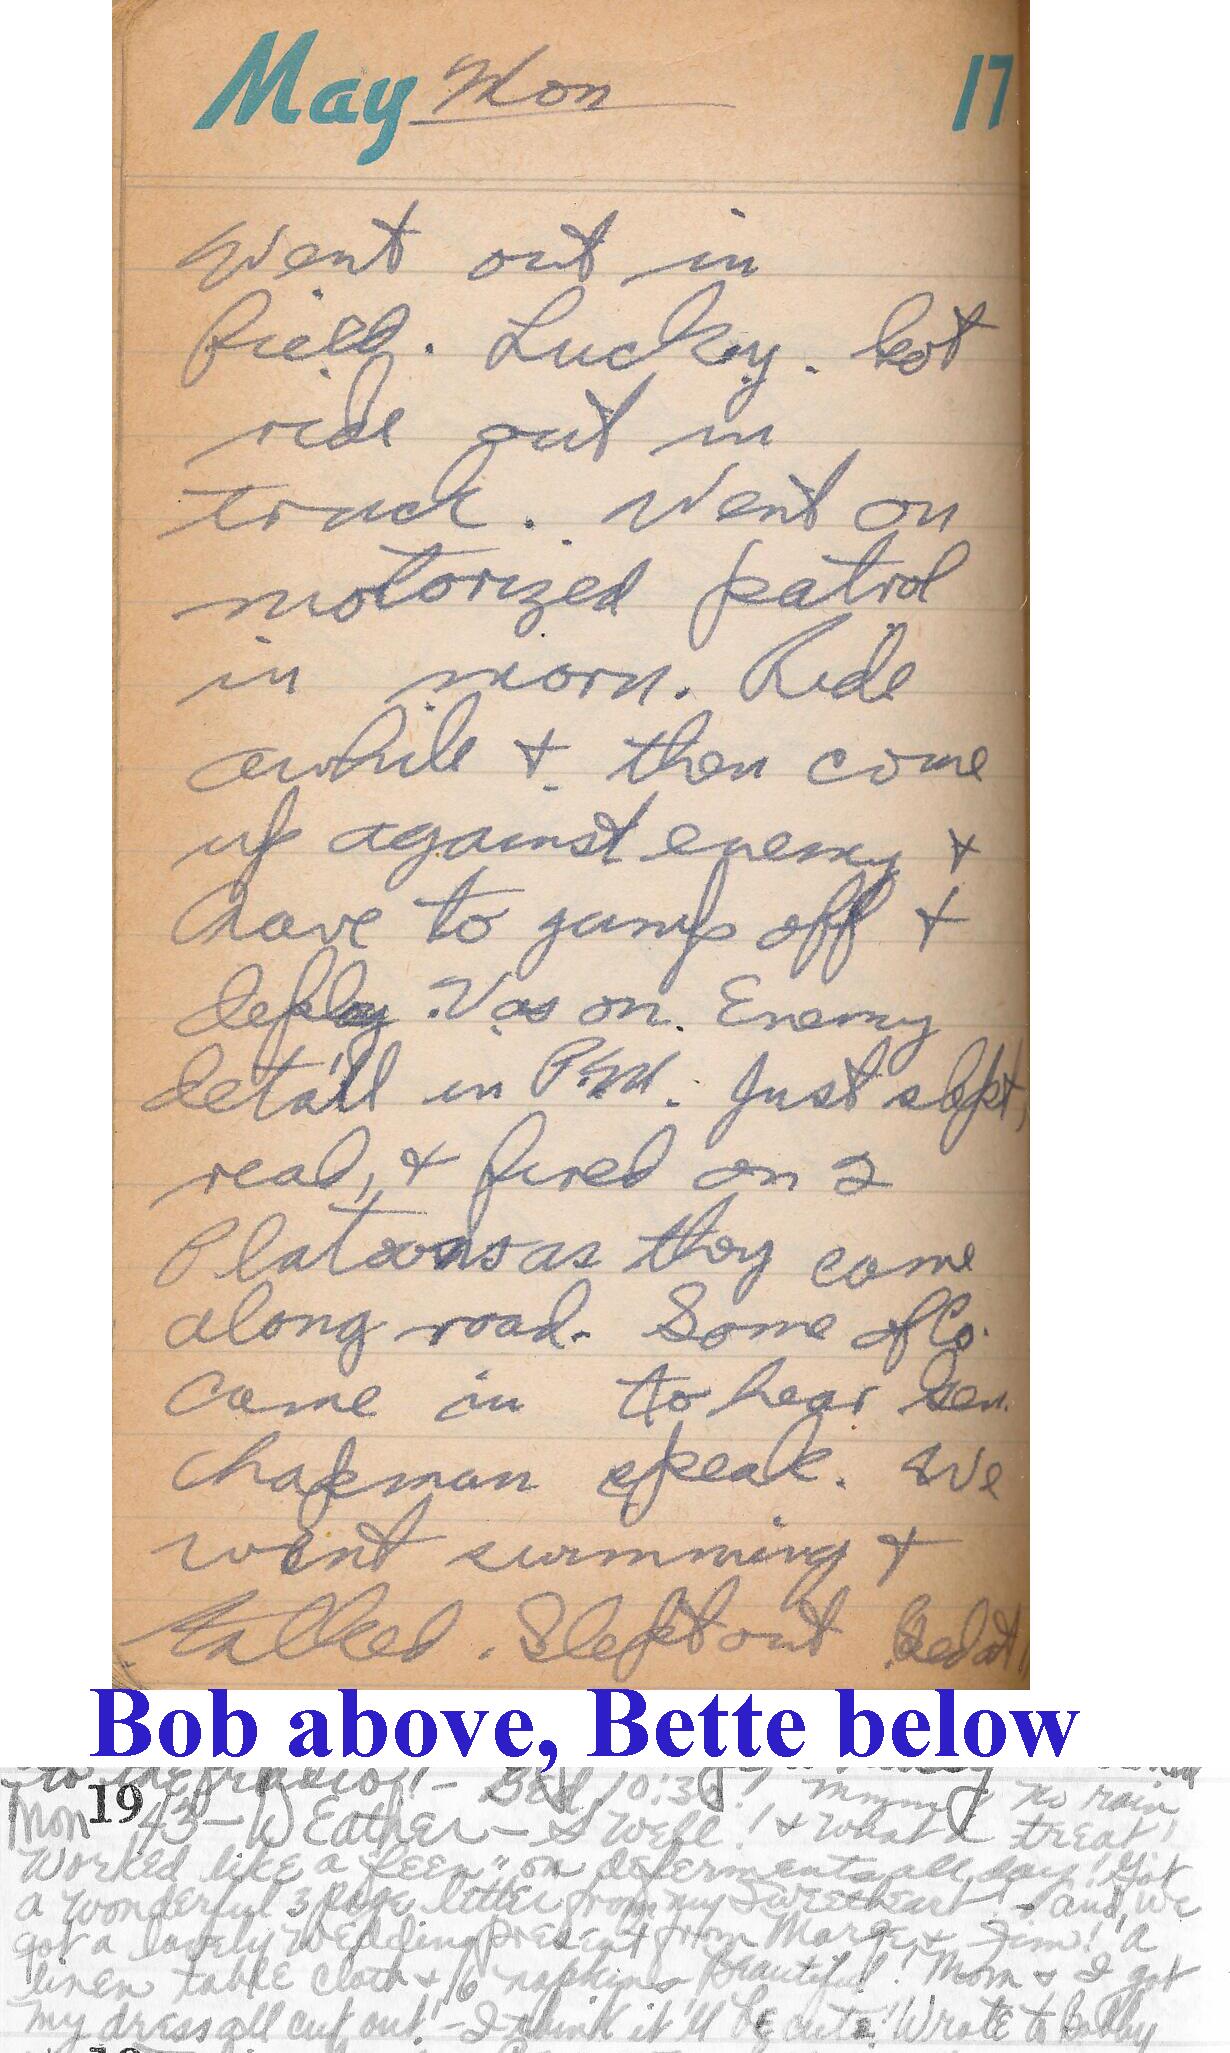 May Mon 17
Went out in
field. Lucky. Got
ride out in
truck. Went on
motorized patrol
in morn. Ride
awhile & then come
up against enemy &
have to jump off &
deploy. Was on. Enemy
detail in P.M. Just slept,
read, & fired on 2
Platoons as they came
along road. Some of Co.
came in to hear Gen.
Chapman speak. We
went swimming &
talked. Slept out Bed at
Bob above, Bette below
to the radio! - Bed, 10:30!
19
Mon '43 - WEather - Swell! & what a treat! No rain
Worked like a "feen" on deferments all day! Got
a wonderful 3 page letter from my Sweetheart! - and, we
got a lovely wedding present from Marge & Jim! a
linen table cloth & 6 napkins Beautiful! Mom & I got
my dress all cut out! - I think it'll be cute! Wrote to Bobby